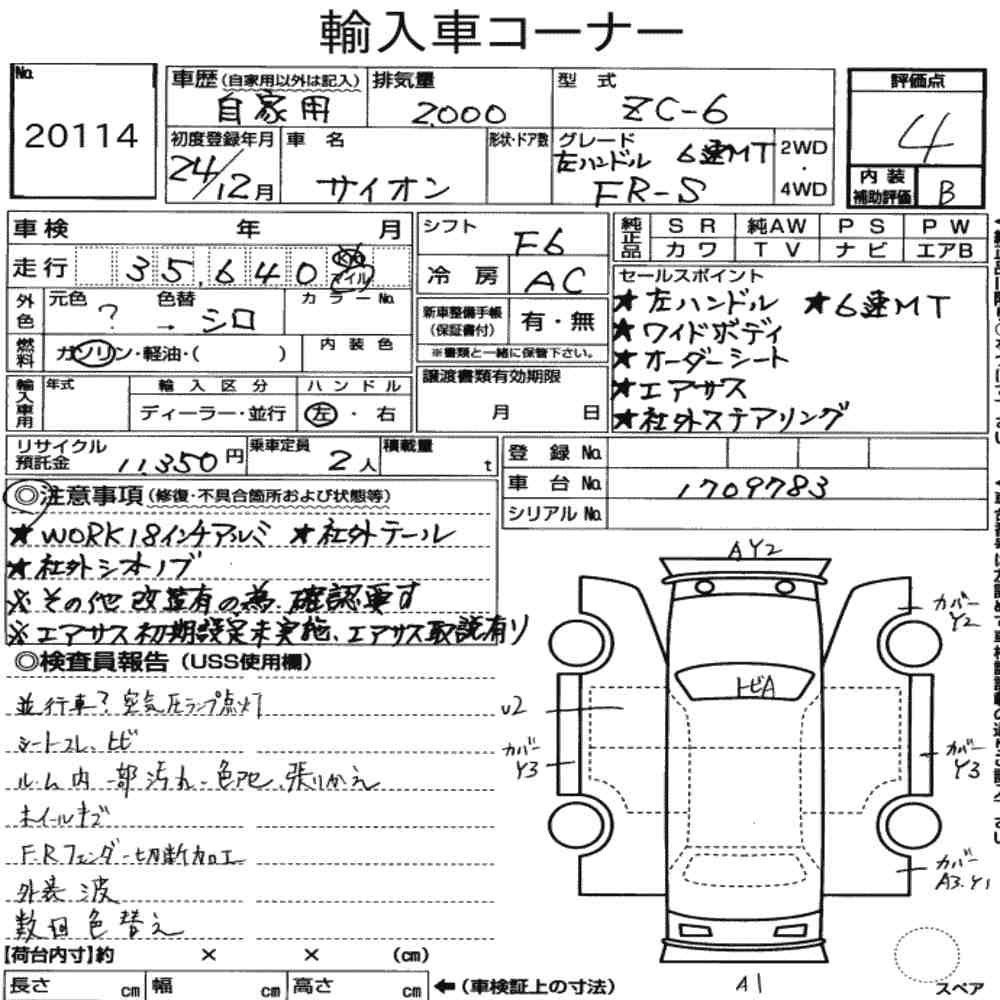 輸入車コーナー
No.
20114
車歴(自家用以外は記入)
自家用
排気量
2,000
型 式
ZC-6
評価点
4
初度登録年月
24/12月
車 名
サイオン
形状・ドア数
グレード
左ハンドル 6速MT
FR-S
2WD
・
4WD
内 装
補助評価
B
車検 年 月
走行 35,640
マイル
シフト
F6
冷 房
AC
純正品
S R 純AW P S P W
カワ T V ナビ エアB
外色
元色 ?
色替 → シロ
カラーNo.
新車整備手帳
(保証書付)
有・無
※書類と一緒に保管下さい。
セールスポイント
★左ハンドル ★6速MT
★ワイドボディ
★オーダーシート
★エアサス
★社外ステアリング
燃料
ガソリン・軽油・( )
内 装 色
輸入車用
年式
輸 入 区 分
ディーラー・並行
ハ ン ド ル
左 ・ 右
譲渡書類有効期限
月 日
リサイクル
預託金
11,350円
乗車定員
2人
積載量
t
登 録 No.
車 台 No. 1709783
シリアル No.
◎注意事項(修復・不具合箇所および状態等)
★WORK18インチアルミ ★社外テール
★社外シフトノブ
※その他改造有の為、確認要す
※エアサス初期設定未実施、エアサス取説有り
◎検査員報告(USS使用欄)
並行車? 空気圧ランプ点灯
シートスレ、トビ
ルーム内一部汚れ・色アセ、張りかえ
ホイールキズ
F.Rフェンダー切断加工
外装 波
数回色替え
AY2
カバー
Y2
トビA
U2
カバー
Y3
カバー
Y3
カバー
A3.Y1
A1
スペア
【荷台内寸】約 × × (cm)
長さ cm 幅 cm 高さ cm ←(車検証上の寸法)